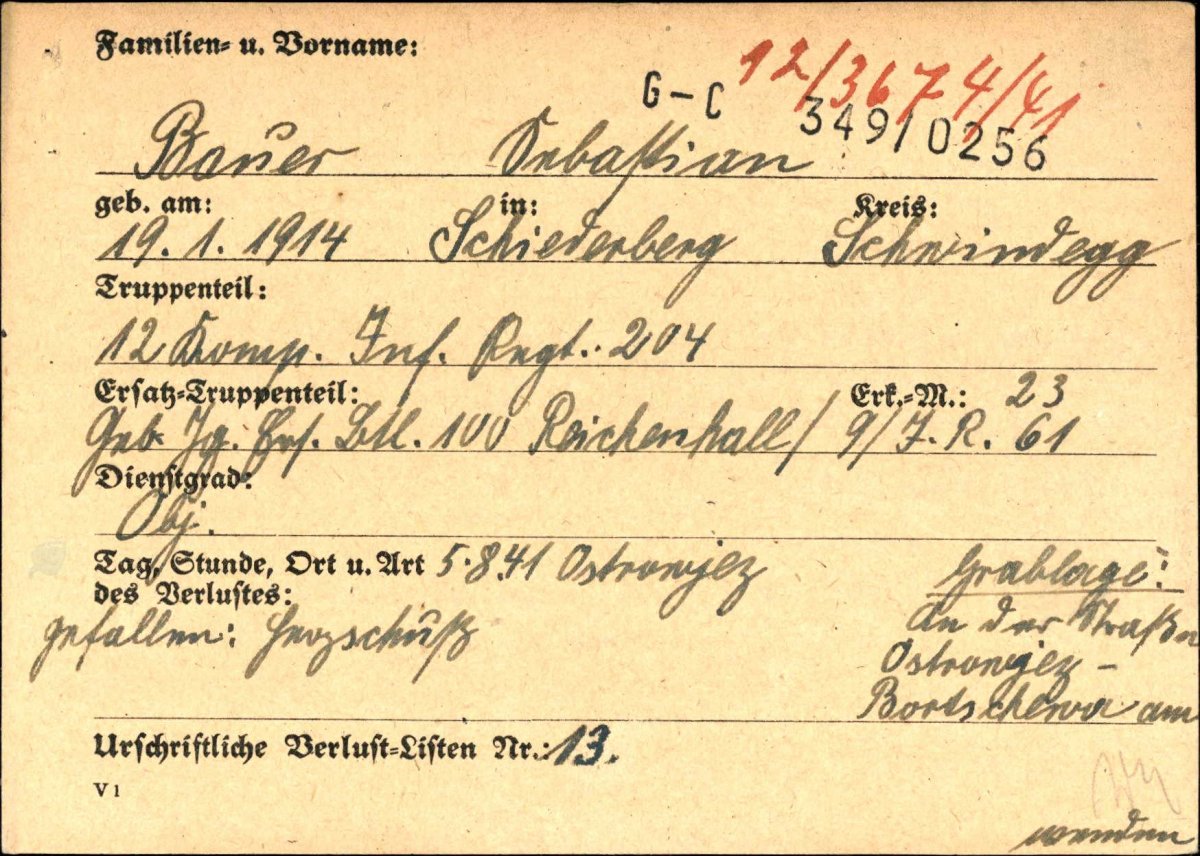 Familien- u. Vorname:
12/3674/41
G-C 349/0256
Bauer Sebastian
geb. am: in: Kreis:
19. 1. 1914 Schiederberg Schwindegg
Truppenteil:
12 Komp. Inf. Regt. 204
Ersatz-Truppenteil: Erk.-M.: 23
Geb. Jg. Ers. Btl. 100 Reichenhall / 9/I.R. 61
Dienstgrad:
Obj.
Tag, Stunde, Ort u. Art 5.8.41 Ostrowjez Grablage:
des Verlustes:
gefallen: Herzschuß An der Straße
Ostrowjez -
Bortschewa am
Urschriftliche Verlust-Listen Nr.: 13.
V 1
wenden